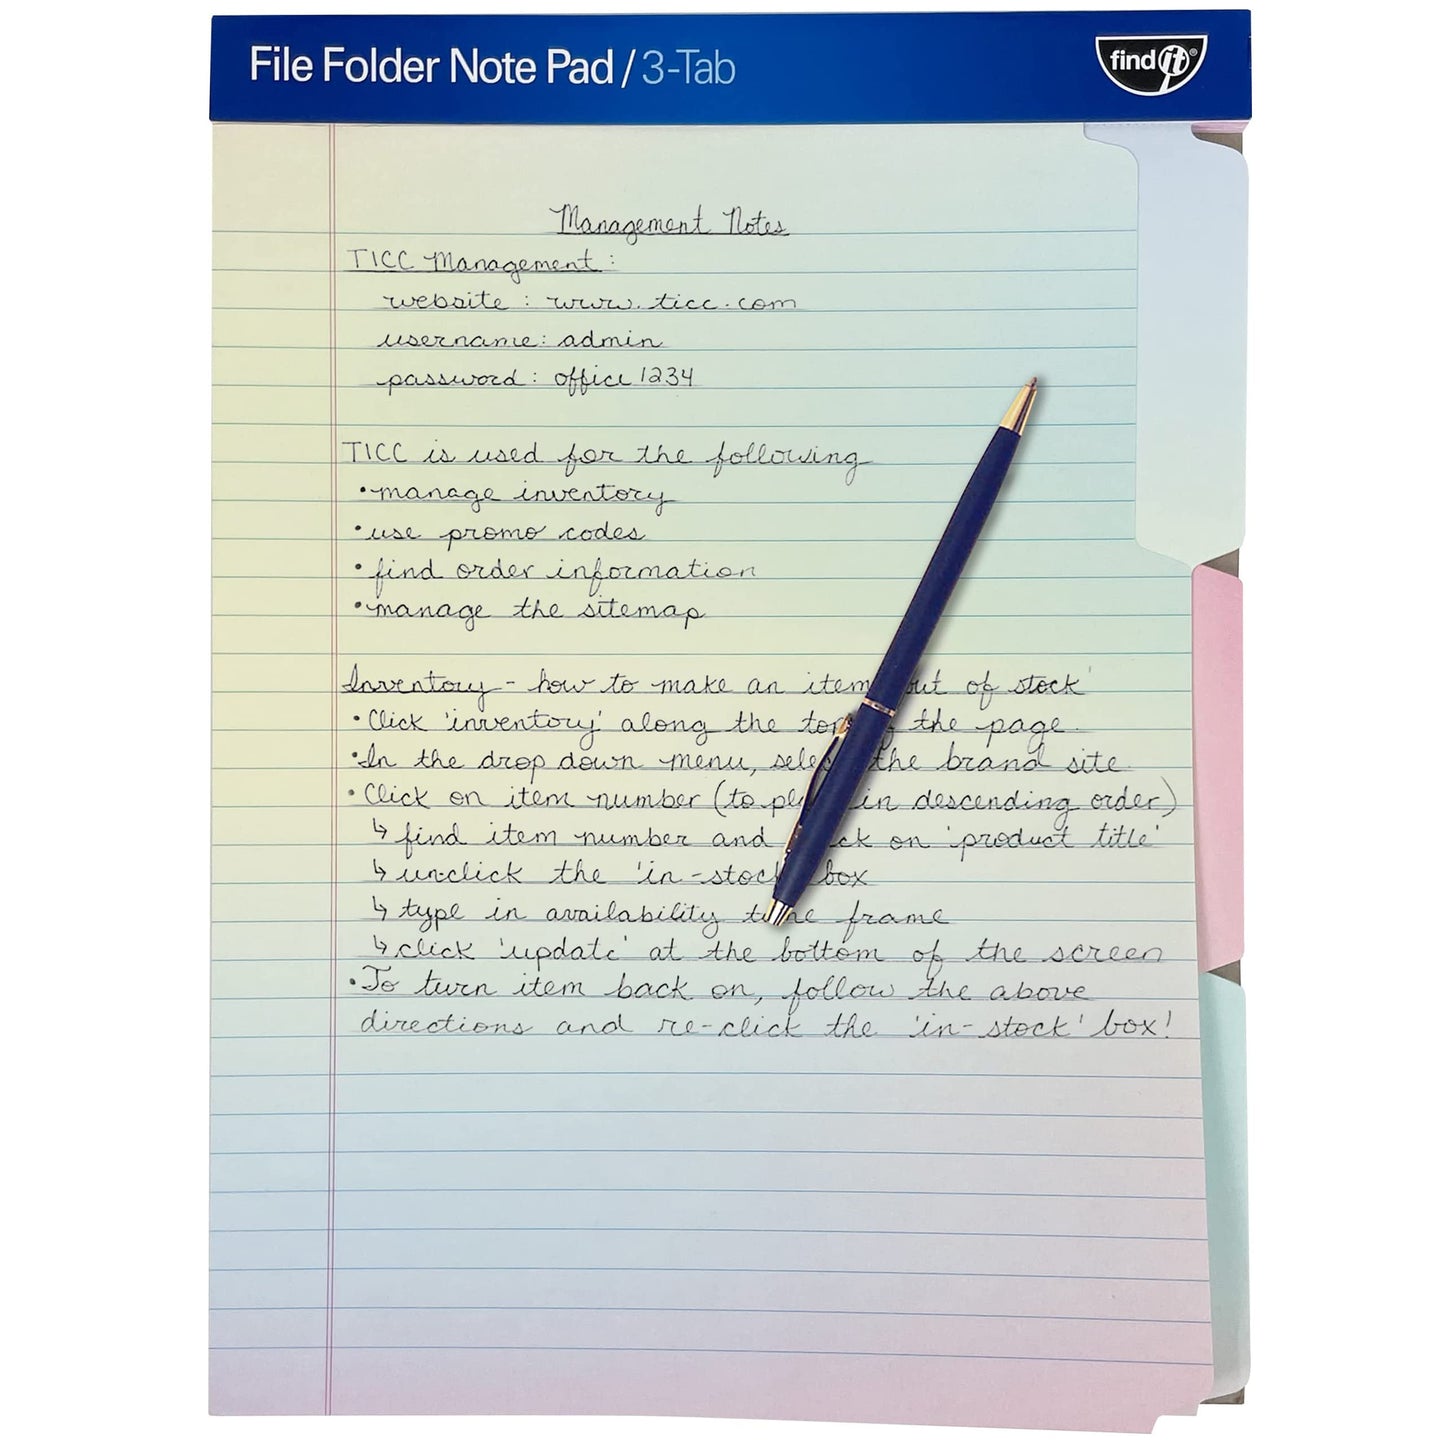 File Folder Note Pad / 3-Tab
find it®
Management Notes
TICC Management:
website: www.ticc.com
username: admin
password: office1234
TICC is used for the following
• manage inventory
• use promo codes
• find order information
• manage the sitemap
Inventory - how to make an item out of stock
• Click 'inventory' along the top the page.
• In the drop down menu, select the brand site
• Click on item number (to in descending order)
↳ find item number and click on 'product title'
↳ unclick the 'in-stock' box
↳ type in availability time frame
↳ click 'update' at the bottom of the screen
• To turn item back on, follow the above
directions and re-click the 'in-stock' box!